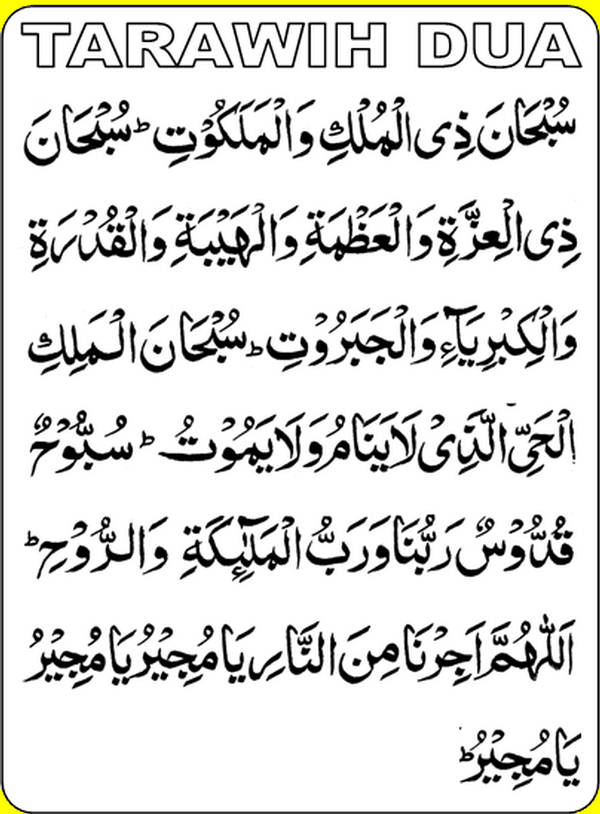 TARAWIH DUA
سُبْحَانَ ذِی الْمُلْكِ وَالْمَلَكُوْتِ ؕ سُبْحَانَ
ذِی الْعِزَّةِ وَالْعَظْمَةِ وَالْهَيْبَةِ وَالْقُدْرَةِ
وَالْكِبْرِيَآءِ وَالْجَبَرُوْتِ ؕ سُبْحَانَ الْمَلِكِ
الْحَيِّ الَّذِیْ لَا يَنَامُ وَلَا يَمُوْتُ ؕ سُبُّوْحٌ
قُدُّوْسٌ رَبُّنَا وَرَبُّ الْمَلٰٓئِكَةِ وَالرُّوْحِ ؕ
اَللّٰهُمَّ اَجِرْنَا مِنَ النَّارِ يَا مُجِيْرُ يَا مُجِيْرُ
يَا مُجِيْرُ ؕ